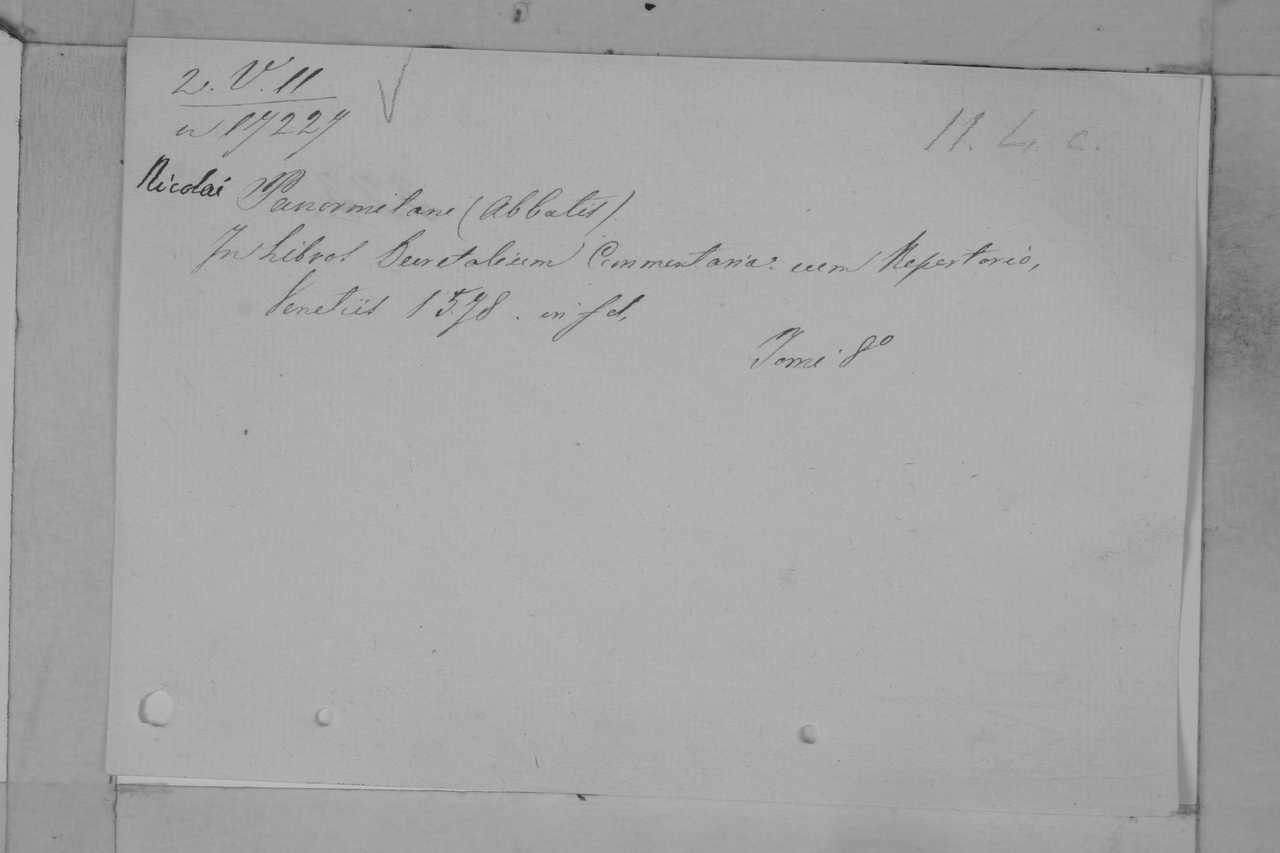 2. V. 11
17227
11. L. c.
Nicolai Panormitani (Abbatis)
In Libros Decretalium Commentaria: cum Repertorio,
Venetiis 1578. in fol,
Tomi 8º